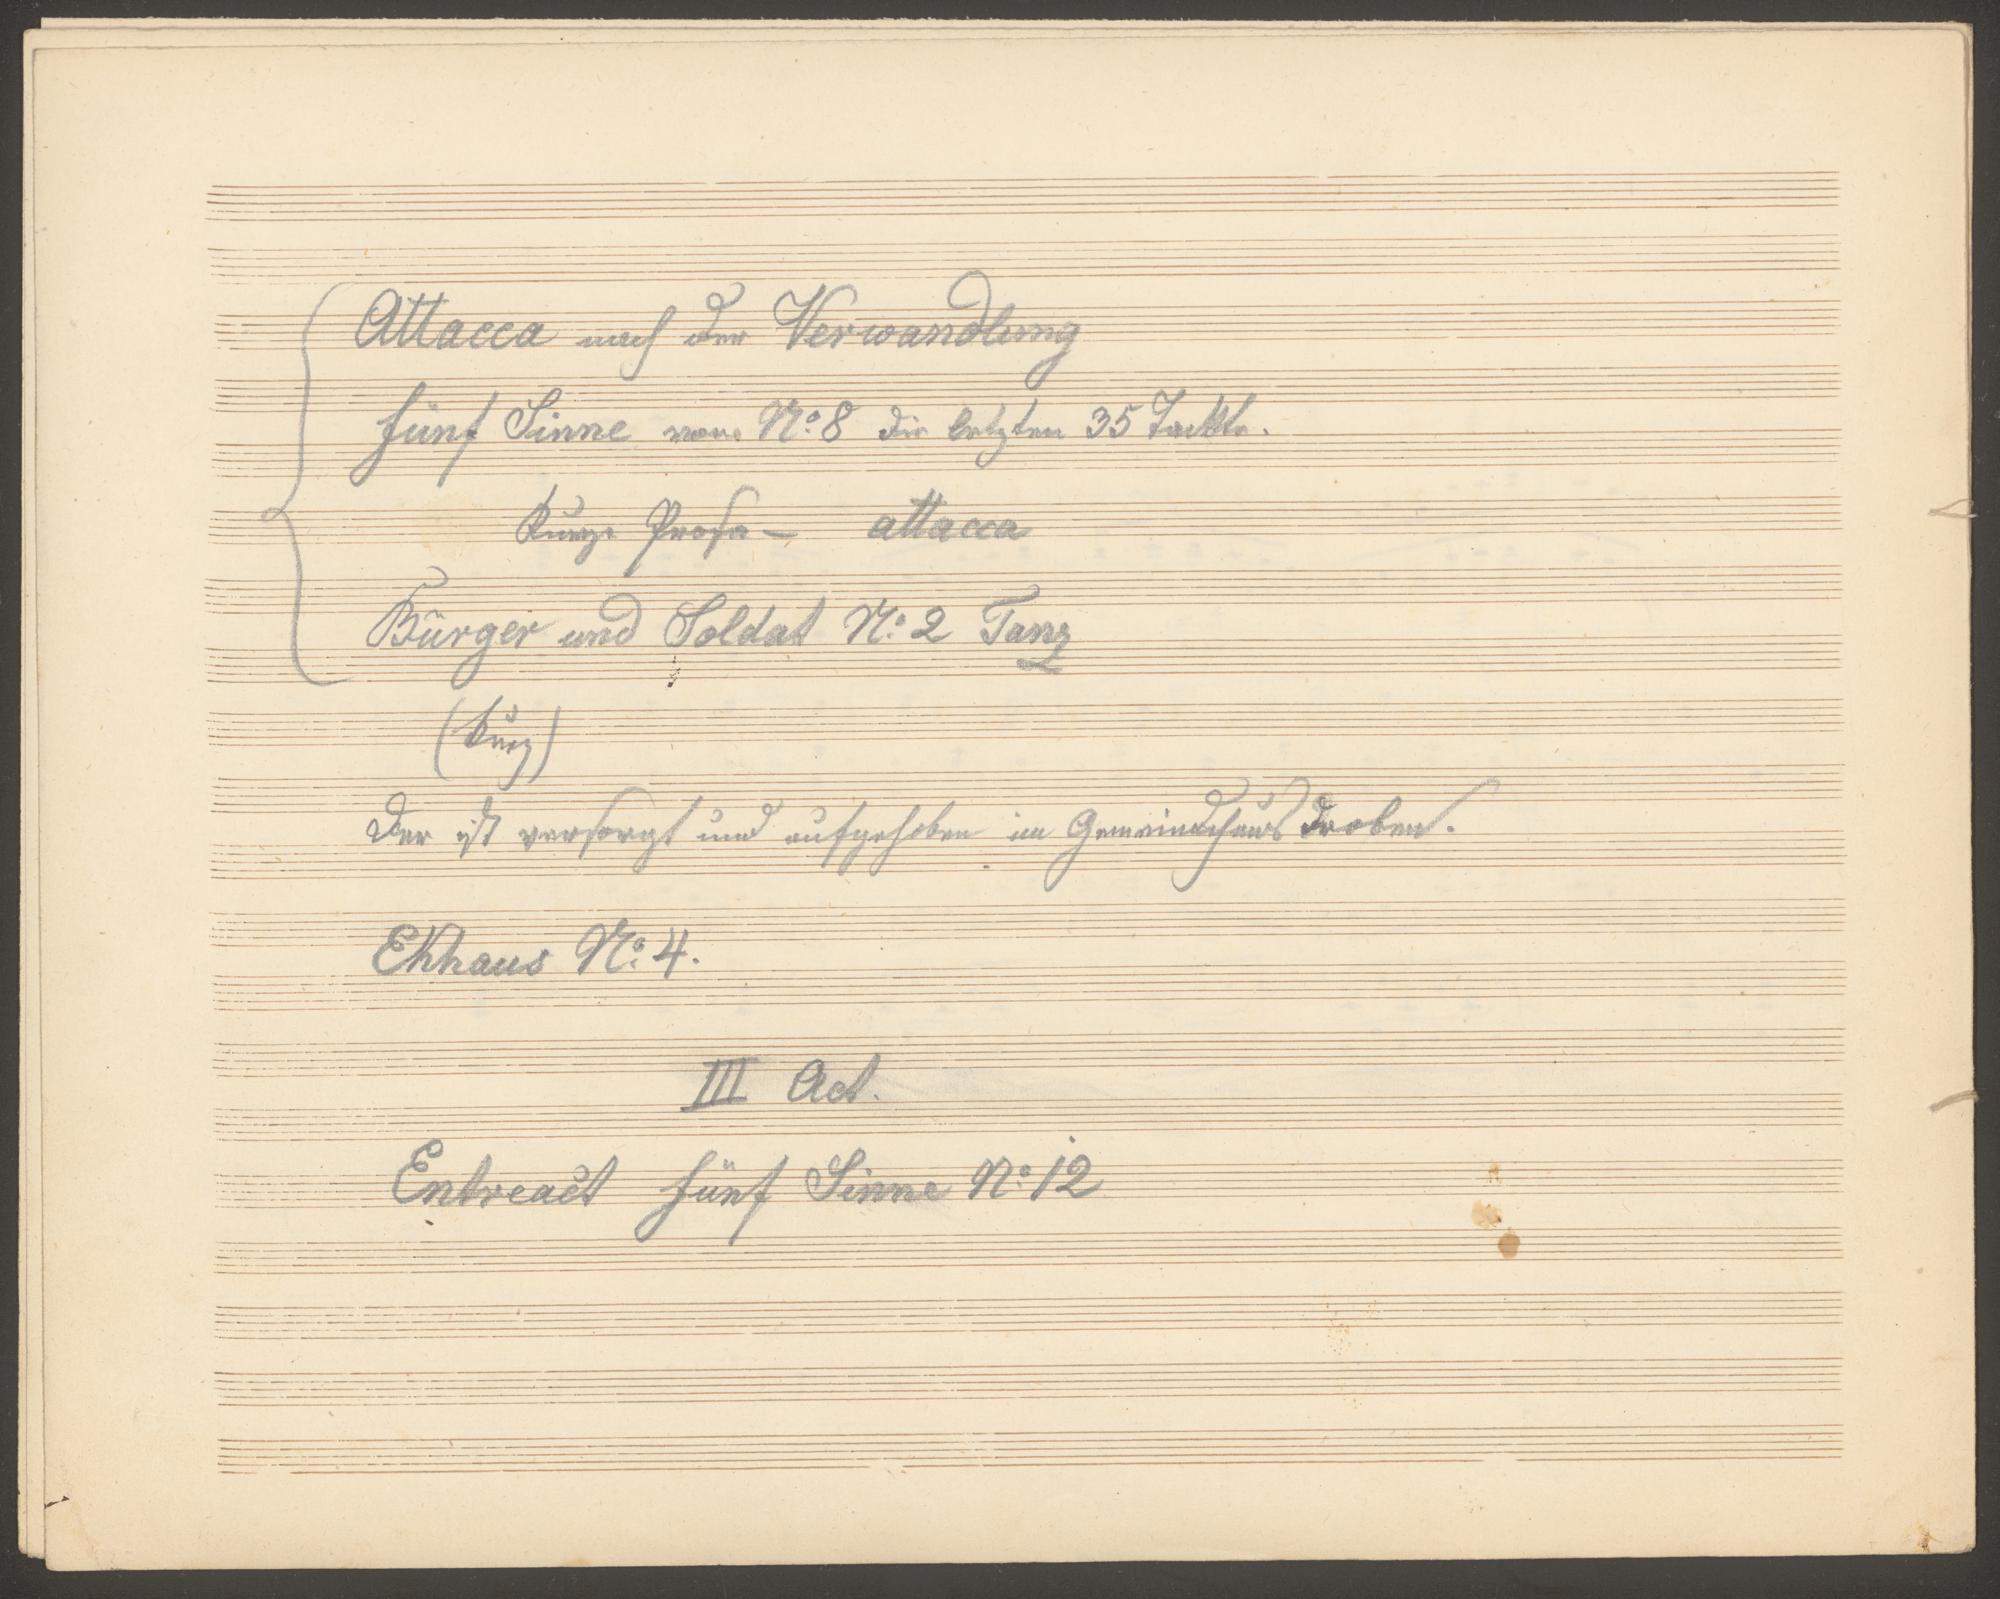 Attacca nach der Verwandlung
fünf Sinne von No. 8 die letzten 35 Tackte.
Kurze Prosa – attacca
Bürger und Soldat No. 2 Tanz
(kurz)
Der ist versorgt und aufgehoben im Gemeindehaus droben.
Ekhaus No. 4.
III Act.
Entreact fünf Sinne No. 12